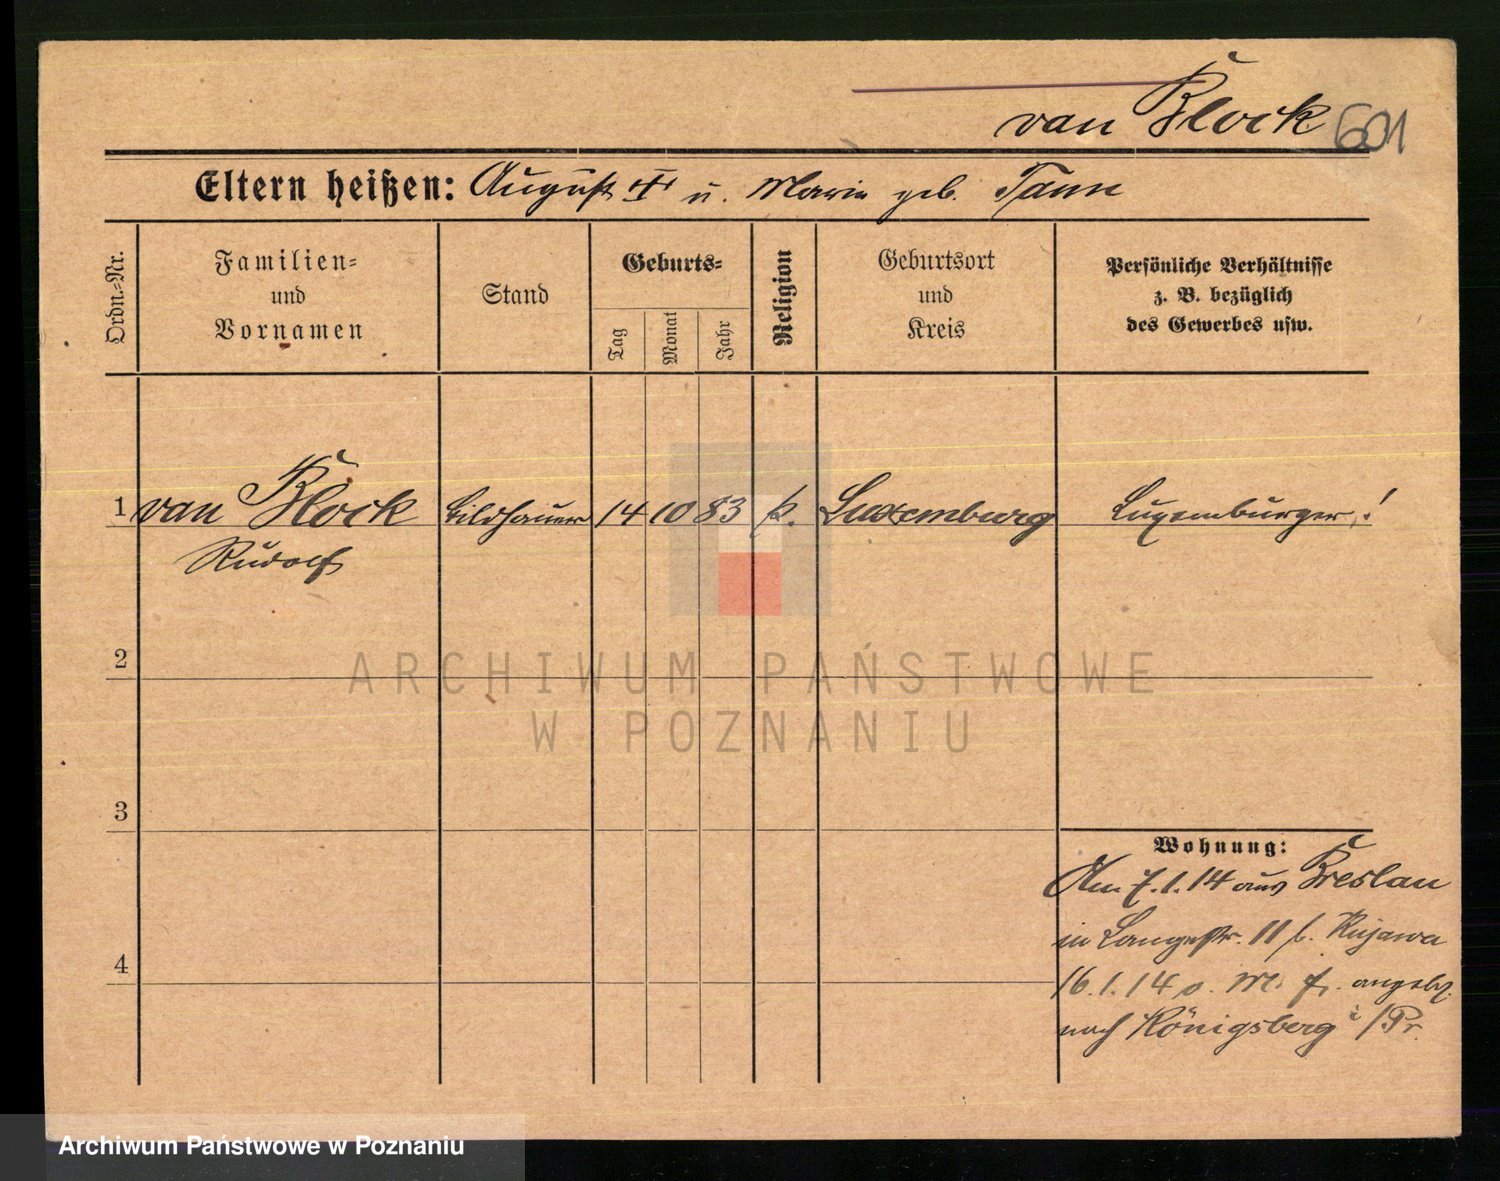 van Block 601
Eltern heißen: August ‡ u. Maria geb. Tann
Ordn.-Nr.
Familien- und Vornamen
Stand
Geburts-
Tag
Monat
Jahr
Religion
Geburtsort und Kreis
Persönliche Verhältnisse
z. B. bezüglich
des Gewerbes usw.
1 van Block Bildhauer 14 10 83 k. Luxemburg Luxemburger!
Rudolf
2
ARCHIWUM PAŃSTWOWE
W POZNANIU
3
Wohnung:
Am 7.1.14 aus Breslau
in Langestr. 11 b. Kujawa
4
16.1.14 angebl.
nach Königsberg i/Pr.
Archiwum Państwowe w Poznaniu